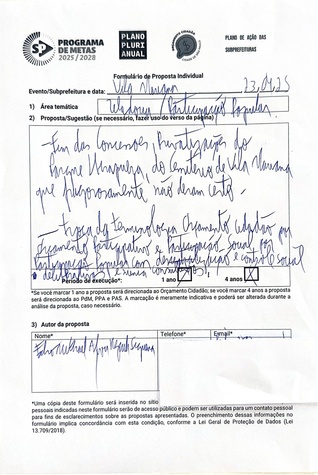 PROGRAMA DE METAS 2025 / 2028
PLANO PLURI ANUAL
PLANO DE AÇÃO DAS SUBPREFEITURAS
Formulário de Proposta Individual
Evento/Subprefeitura e data: Vila Mariana
1) Área temática Participação Popular
2) Proposta/Sugestão (se necessário, faça uso do verso da página)
- Fim das Concessões, Privatizações do
Parque Ibirapuera, do Cemitério de Vila Mariana
que não deram certo.
- terminologia Orçamento cidadão por
orçamento participativo e Participação social por
Participação Popular com e controle social
deliberativos e
Período de execução*: 1 ano X 4 anos X
*Se você marcar 1 ano a proposta será direcionada ao Orçamento Cidadão; se você marcar 4 anos a proposta
será direcionada ao PdM, PPA e PAS. A marcação é meramente indicativa e poderá ser alterada durante a
análise da proposta, caso necessário.
3) Autor da proposta
Nome* Telefone* Email*
*Uma cópia deste formulário será inserida no sítio
pessoais indicadas neste formulário serão de acesso público e podem ser utilizadas para um contato pessoal
para fins de esclarecimentos sobre as propostas apresentadas. O preenchimento dessas informações no
formulário implica concordância com esta condição, conforme a Lei Geral de Proteção de Dados (Lei
13.709/2018).